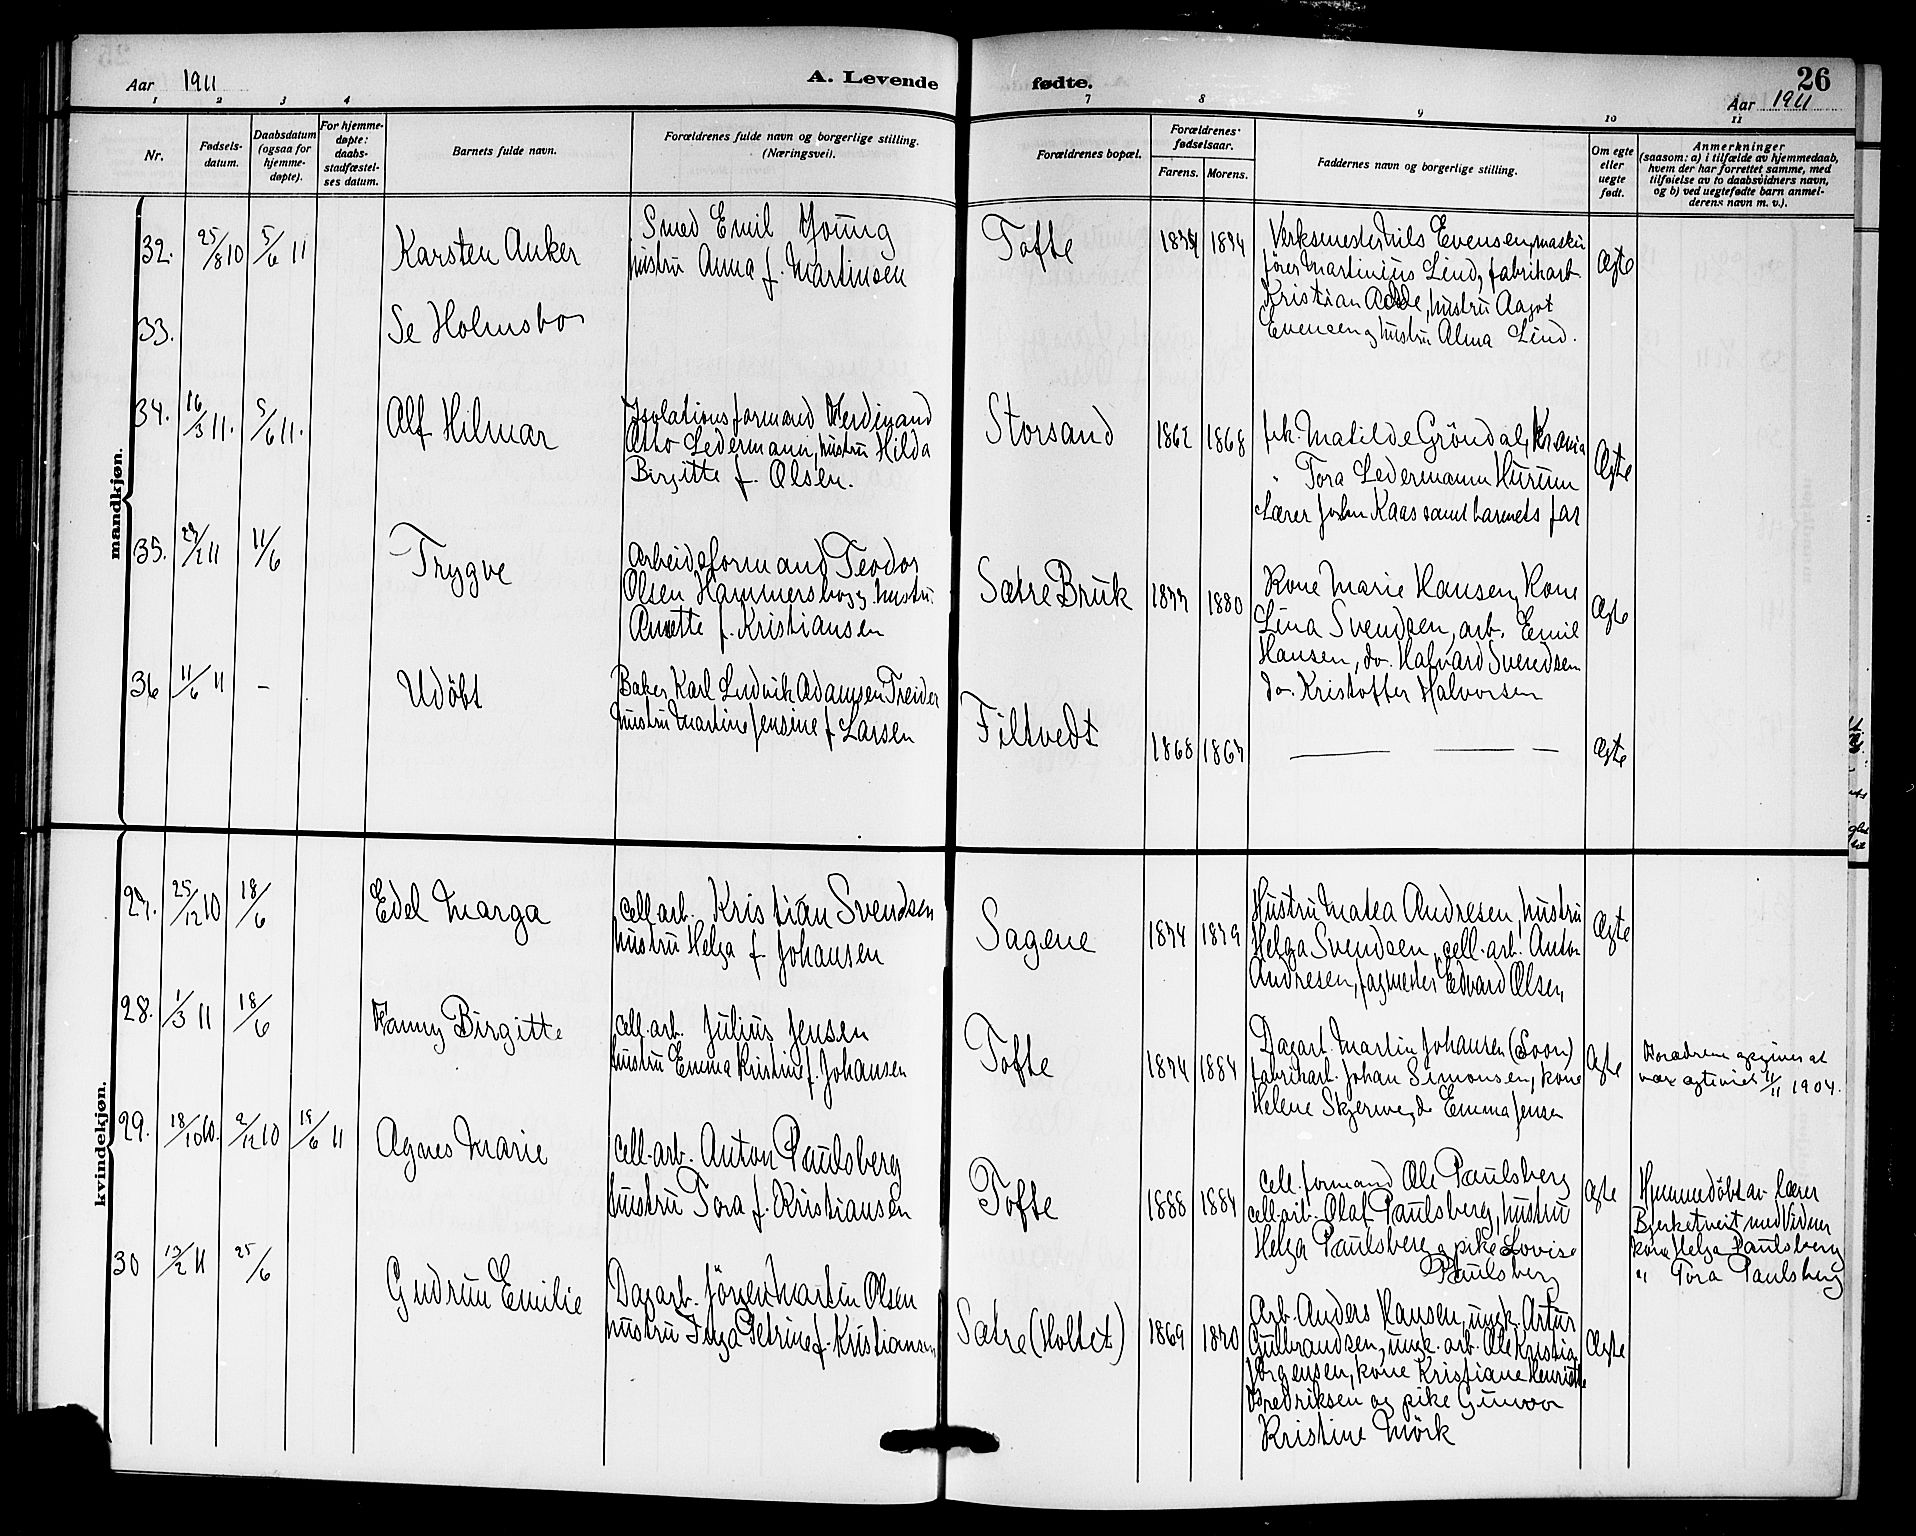 Aar 1911
A. Levende
fødte.
26
Aar 1911
1 2 3 4 7 8 9 10 11
Nr.
Fødsels-
datum.
Daabsdatum
(ogsaa for
hjemme-
døpte).
For hjemme-
døpte:
daabs-
stadfæstel-
ses datum.
Barnets fulde navn.
Forældrenes fulde navn og borgerlige stilling.
(Næringsvei).
Forældrenes bopæl.
Forældrenes
fødselsaar.
Farens. Morens.
Faddernes navn og borgerlige stilling.
Om egte
eller
uegte
født.
Anmerkninger
(saasom: a) i tilfælde av hjemmedaab,
hvem der har forrettet samme, med
tilføielse av to daabsvidners navn,
og b) ved uegtefødte barn anmel-
derens navn m. v.).
mandkjøn.
32. 25/8 10 5/6 11
Karsten Anker
Smed Emil Young
hustru Anna f. Martinsen
Tofte
1874 1874
Verksmester Nils Evensen, maskin
fører Martinius Lind, fabrikarb
Kristian Adde, hustru Aagot
Evensen og hustru Alma Lind.
Ægte
33.
Se Holmsbo
34. 16/3 11. 5/6 11.
Alf Hilmar
Isolationsformand Ferdinand
Otto Ledermann, hustru Hilda
Birgitte f. Olsen.
Storsand
1862 1868
frk. Matilde Gröndal, Krania
" Tora Ledermann Hurum
Lærer John Kaas samt barnets far
Ægte
35. 29/2 11 11/6
Trygve
Arbeidsformand Teodor
Olsen Hammersbogg hustru
Annette f. Kristiansen
Sætre Bruk
1877 1880
Kone Marie Hansen, Kone
Lina Svendsen, arb. Emil
Hansen, do. Halvard Svendsen
do. Kristoffer Halvorsen
Ægte
36 11/6 11 –
Udöbt
Baker Karl Ludvik Adamsen Treider
hustru Martine Jensine f. Larsen
Filtvedt
1868 1867
— — —
Ægte
kvindekjøn.
27. 25/12 10 18/6
Edel Marga
cell.arb. Kristian Svendsen
hustru Helga f. Johansen
Sagene
1874 1879
Hustru Matea Andresen, hustru
Helga Svendsen, cell.arb. Anton
Andresen, fagmester Edvard Olsen,
Ægte
28. 1/3 11 18/6
Fanny Birgitte
cell.arb. Julius Jensen
hustru Emma Kristine f. Johansen
Tofte
1874 1884
Dagarb. Martin Johansen (Soon)
fabrikarb. Johan Simonsen, kone
Helene Skjerve, do Emma Jensen
Ægte
Forældrene opgives at
være egteviet 11/11 1904.
29. 18/10 10. 2/12 10 19/6 11
Agnes Marie
cell.arb. Anton Paulsberg
hustru Tora f. Kristiansen
Tofte
1888 1884
cell.formand Ole Paulsberg
cell.arb. Olaf Paulsberg, hustru
Helga Paulsberg og pike Lovise
Paulsberg
Ægte
Hjemmedöbt av lærer
Bjerketveit med Vidner
kone Helga Paulsberg
" Tora Paulsberg
30 13/2 11 25/6
Gudrun Emilie
Dagarb. Jörgen Martin Olsen
hustru Inga Petrine f. Kristiansen
Sætre (Holtet)
1869 1870
Arb. Anders Hansen, ungk. Artur
Gulbrandsen, ungk. arb. Ole Kristian
Jörgensen, kone Kristiane Henriette
Fredriksen og pike Gunvor
Kristine Mörk
Ægte